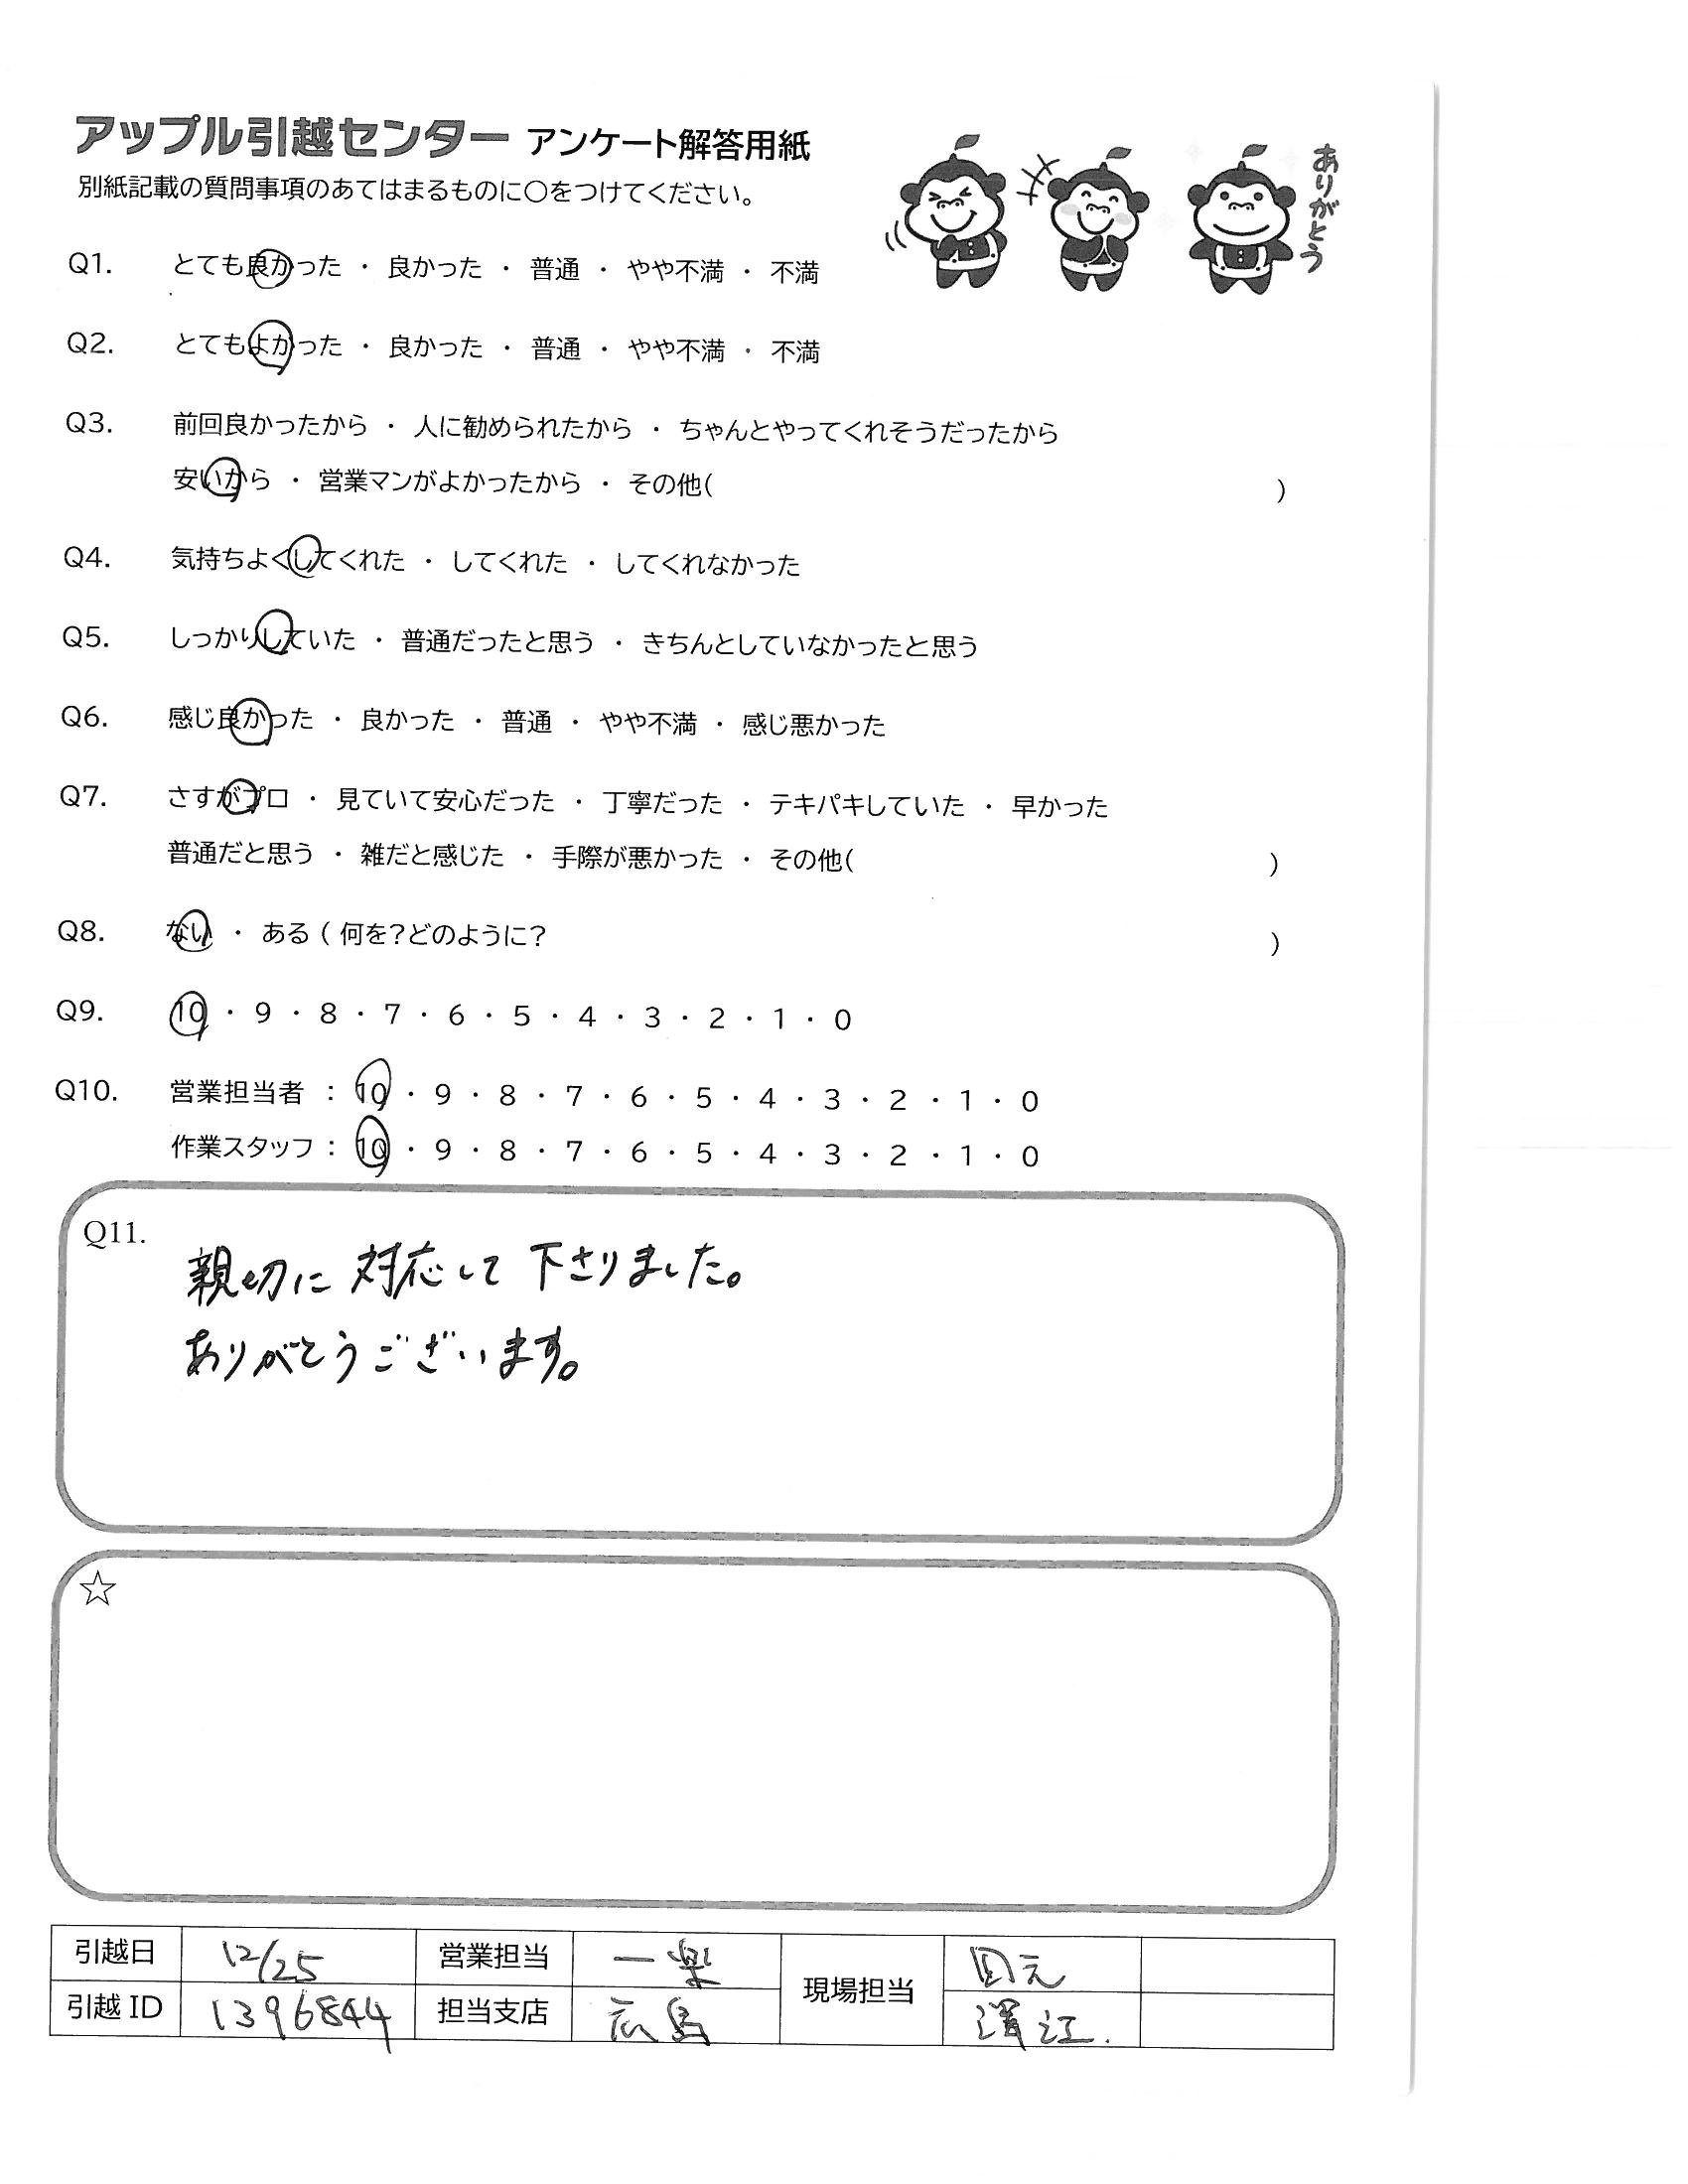 アップル引越センター アンケート解答用紙
別紙記載の質問事項のあてはまるものに○をつけてください。
ありがとう
Q1. とても良かった ・ 良かった ・ 普通 ・ やや不満 ・ 不満
Q2. とてもよかった ・ 良かった ・ 普通 ・ やや不満 ・ 不満
Q3. 前回良かったから ・ 人に勧められたから ・ ちゃんとやってくれそうだったから
安いから ・ 営業マンがよかったから ・ その他( )
Q4. 気持ちよくしてくれた ・ してくれた ・ してくれなかった
Q5. しっかりしていた ・ 普通だったと思う ・ きちんとしていなかったと思う
Q6. 感じ良かった ・ 良かった ・ 普通 ・ やや不満 ・ 感じ悪かった
Q7. さすがプロ ・ 見ていて安心だった ・ 丁寧だった ・ テキパキしていた ・ 早かった
普通だと思う ・ 雑だと感じた ・ 手際が悪かった ・ その他( )
Q8. ない ・ ある ( 何を?どのように? )
Q9. 10 ・ 9 ・ 8 ・ 7 ・ 6 ・ 5 ・ 4 ・ 3 ・ 2 ・ 1 ・ 0
Q10. 営業担当者 : 10 ・ 9 ・ 8 ・ 7 ・ 6 ・ 5 ・ 4 ・ 3 ・ 2 ・ 1 ・ 0
作業スタッフ : 10 ・ 9 ・ 8 ・ 7 ・ 6 ・ 5 ・ 4 ・ 3 ・ 2 ・ 1 ・ 0
Q11.
親切に対応して下さりました。
ありがとうございます。
☆
引越日 12/25 営業担当 一楽 現場担当
引越ID 1396844 担当支店 広島 澤江.